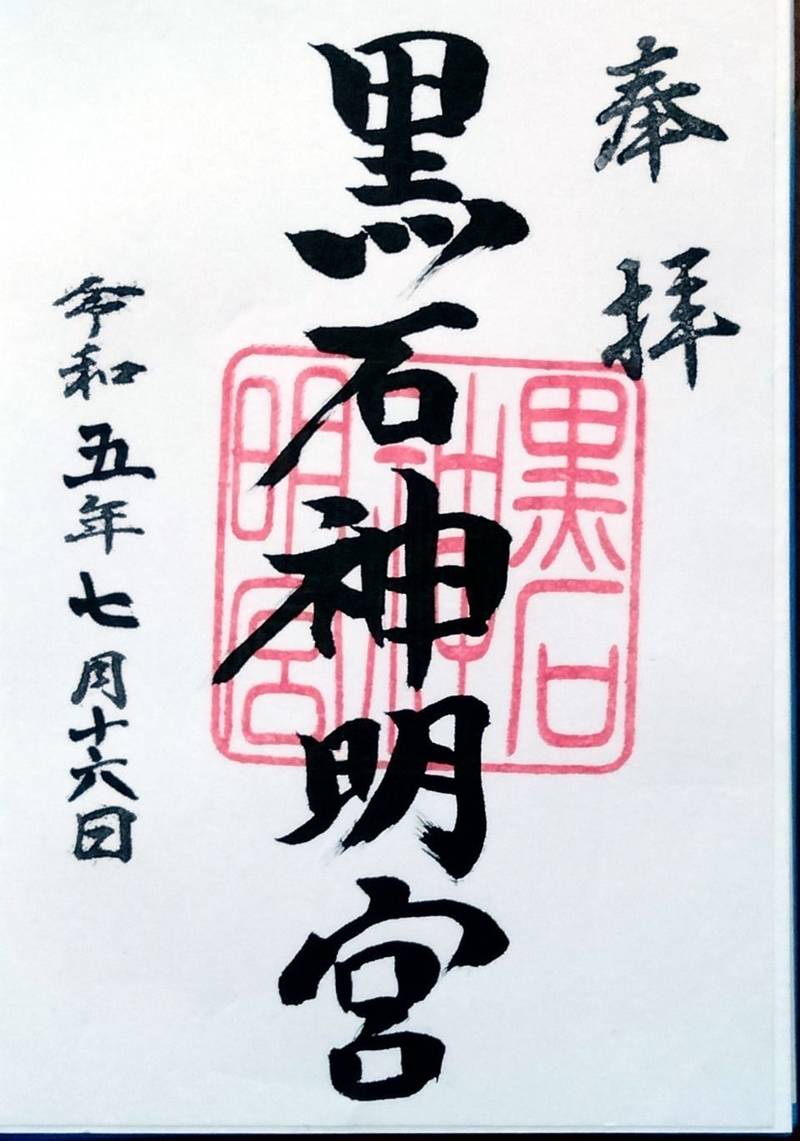 奉拝
黒石神明宮
黒石神明宮
令和五年七月十六日